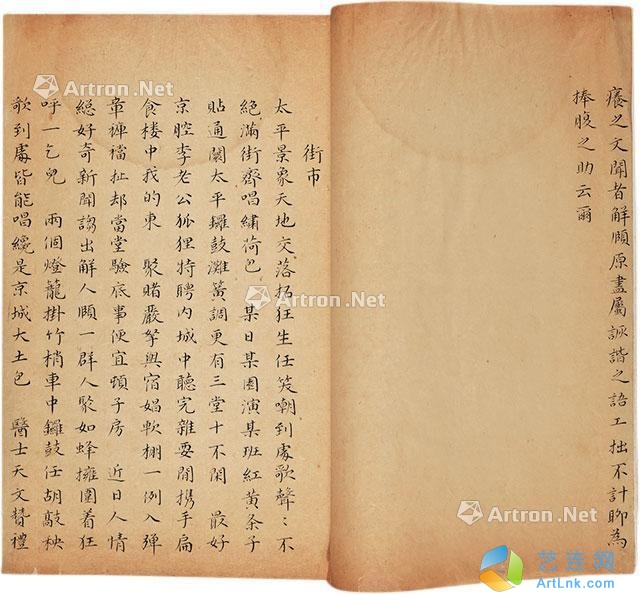 癢之文聞者解頤原盡屬詼諧之語工拙不計聊為
捧腹之助云爾
街市
太平景象天地交落拓狂生任笑嘲到處歌聲〻不
絕滿街齊唱繡荷包 某日某園演某班紅黃条子
貼通闤太平鑼鼓灘簧調更有三堂十不閑 最好
京腔李老公狐狸特聘內城中聽完雜耍閒携手扁
食楼中我的東 聚賭嚴拏與宿娼軟棚一例入殫
章褲襠扯却當堂驗底事便宜頓子房 近日人情
總好奇新聞謅出解人頤一群人聚如蜂擁圍着狂
呼一乞兒 兩個燈籠掛竹梢車中鑼鼓任胡敲秧
歌到處皆能唱纔是京城大土包 醫士天文贊禮
Artron.Net
Artron.Net
Artron.Net
Artron.Net
艺连网
ArtLnk.com